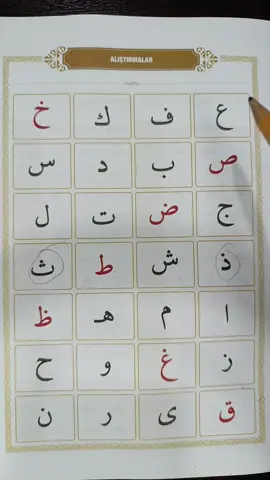 ALIŞTIRMALAR
ع ف ك خ
ص ب د س
ج ض ت ل
ذ ش ط ث
ا م هـ ظ
ز غ و ح
ق ى ر ن